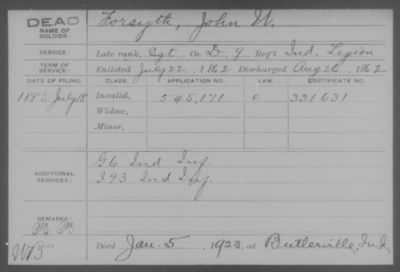 DEAD
NAME OF SOLDIER:
Forsyth, John W.
SERVICE:
Late rank, Sgt Co. D, 9 Reg't Ind. Legion
TERM OF SERVICE:
Enlisted July 22, 1862 Discharged Aug 26, 1862
DATE OF FILING. CLASS. APPLICATION NO. LAW. CERTIFICATE NO.
1885 July 18 Invalid, 545,171 331631
Widow,
Minor,
ADDITIONAL SERVICES:
G 6 Ind Inf.
I 93 Ind Inf
REMARKS:
Died Jan. 5, 1923, at Butlerville, Ind.